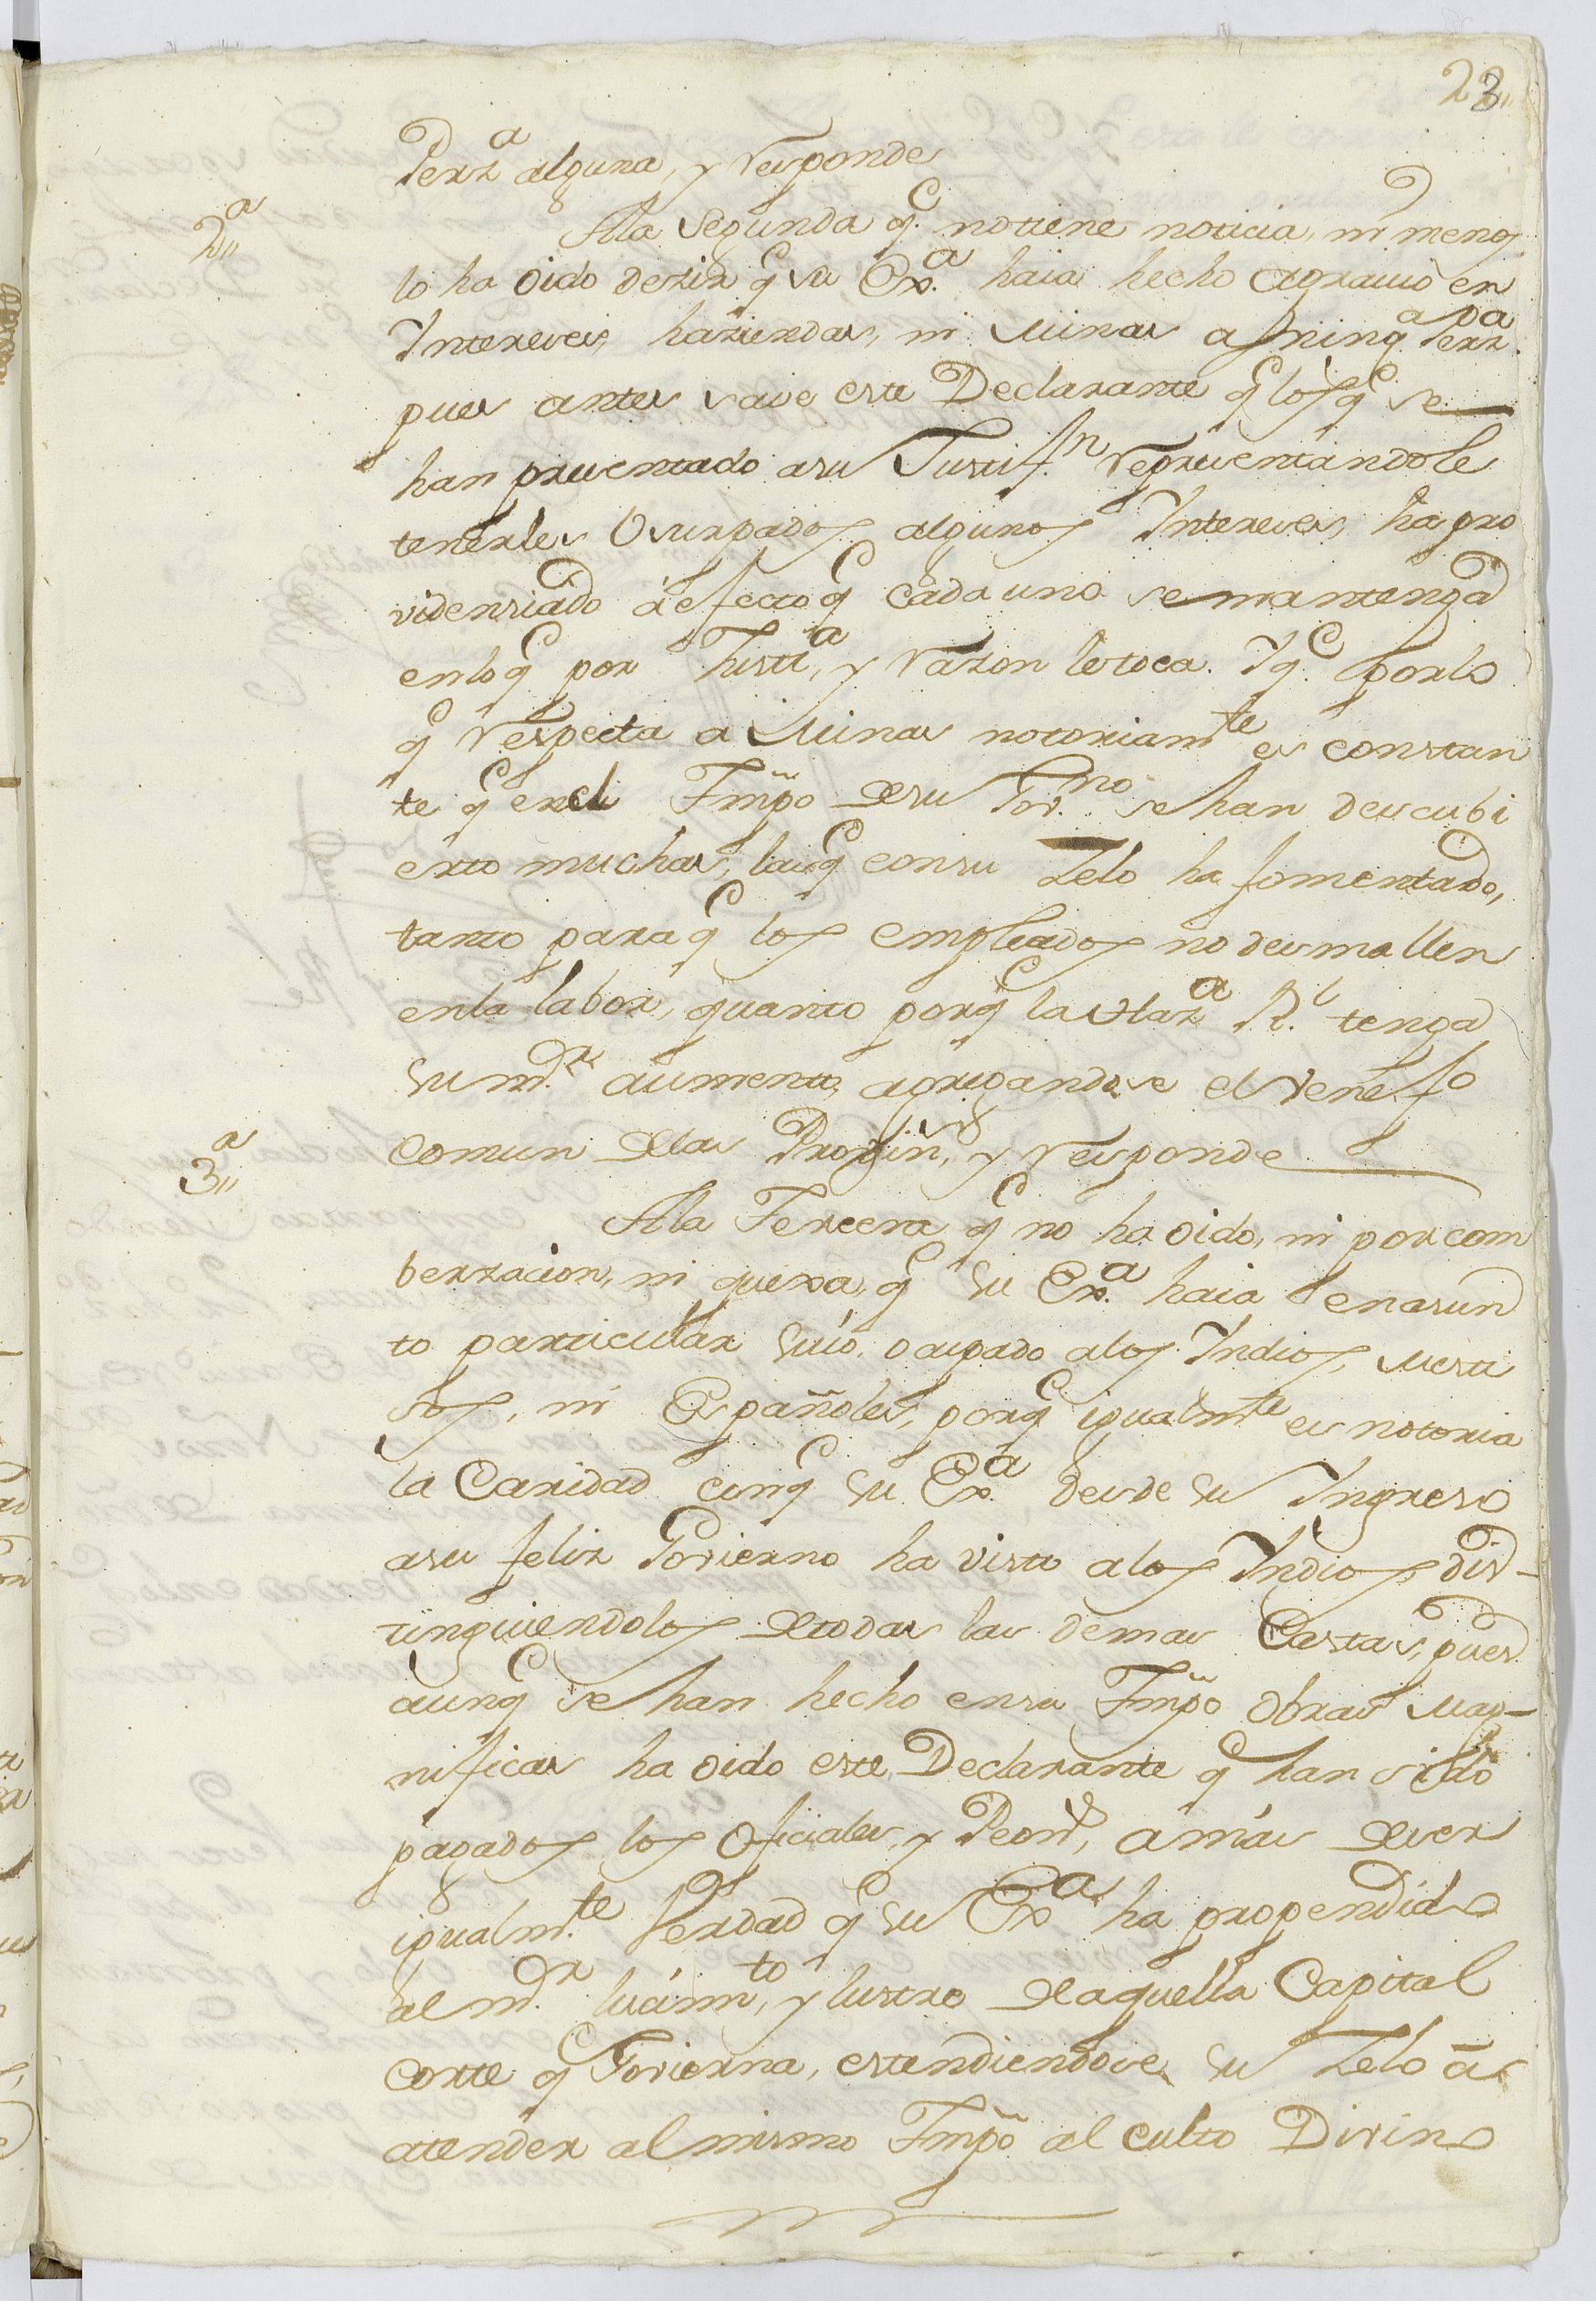 23
Perz.ª alguna, y responde
2ª
Ala segunda q.e no tiene noticia, ni menos
lo ha oido dezir q.e su Ex.ª haia hecho agravio en
Intereses, haziendas, ni Minas a ning.ª Perz.na
pues antes save este Declarante q.e los q.e se
han presentado a su Justif.n representandole
tenerles Vsurpados algunos Intereses, ha pro
videnziado á efecto q.e cada uno se mantenga
enloq.e por Justi.ª, y razon letoca. Y q.e por lo
q.e respecta a Minas notoriam.te es constan
te q.e en el Tmpõ desu Gov.no se han descubi
erto muchas, las q.e consu Zelo ha fomentado,
tanto paraq.e los empleados no desmallen
enla labor, quanto porq.e la Haz.ª R.l tenga
su m.or aumento, agregandose el venef.o
comun delas Provin.s, y responde
3ª
Ala Tercera q.e no ha oido, ni por com
berzacion, ni quexa, q.e su Ex.ª haia en asun
to particular suio, ocupado alos Indios, Mesti
sos, ni Españoles, porq.e igualm.te es notoria
la Caridad conq.e su Ex.ª desde su Ingreso
asu feliz Govierno ha visto alos Indios, dis-
tinguiendolos detodas las demas Castas, pues
aunq.e se han hecho ensu Tmpõ obras Mag-
nificas ha oido este Declarante q.e han sido
pagados los Oficiales, y Peon.s, a más deser
igualm.te Verdad q.e su Ex.ª ha propendido
al m.or lucim.to, y lustre de aquella Capital
corte q.e Govierna, estendiendose su Zelo â
atender al mismo Tmpõ al culto Divino